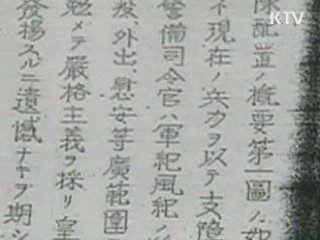 KTV
陳配置ノ概要第一圖ノ如
ネ現在ノ兵力ヲ以テ支障
警備司令官ハ軍紀風紀ノ
發、外出、慰安等廣範圍
勉メテ嚴格主義ヲ採リ皇
發揚スルニ遺憾ナキヲ期シ